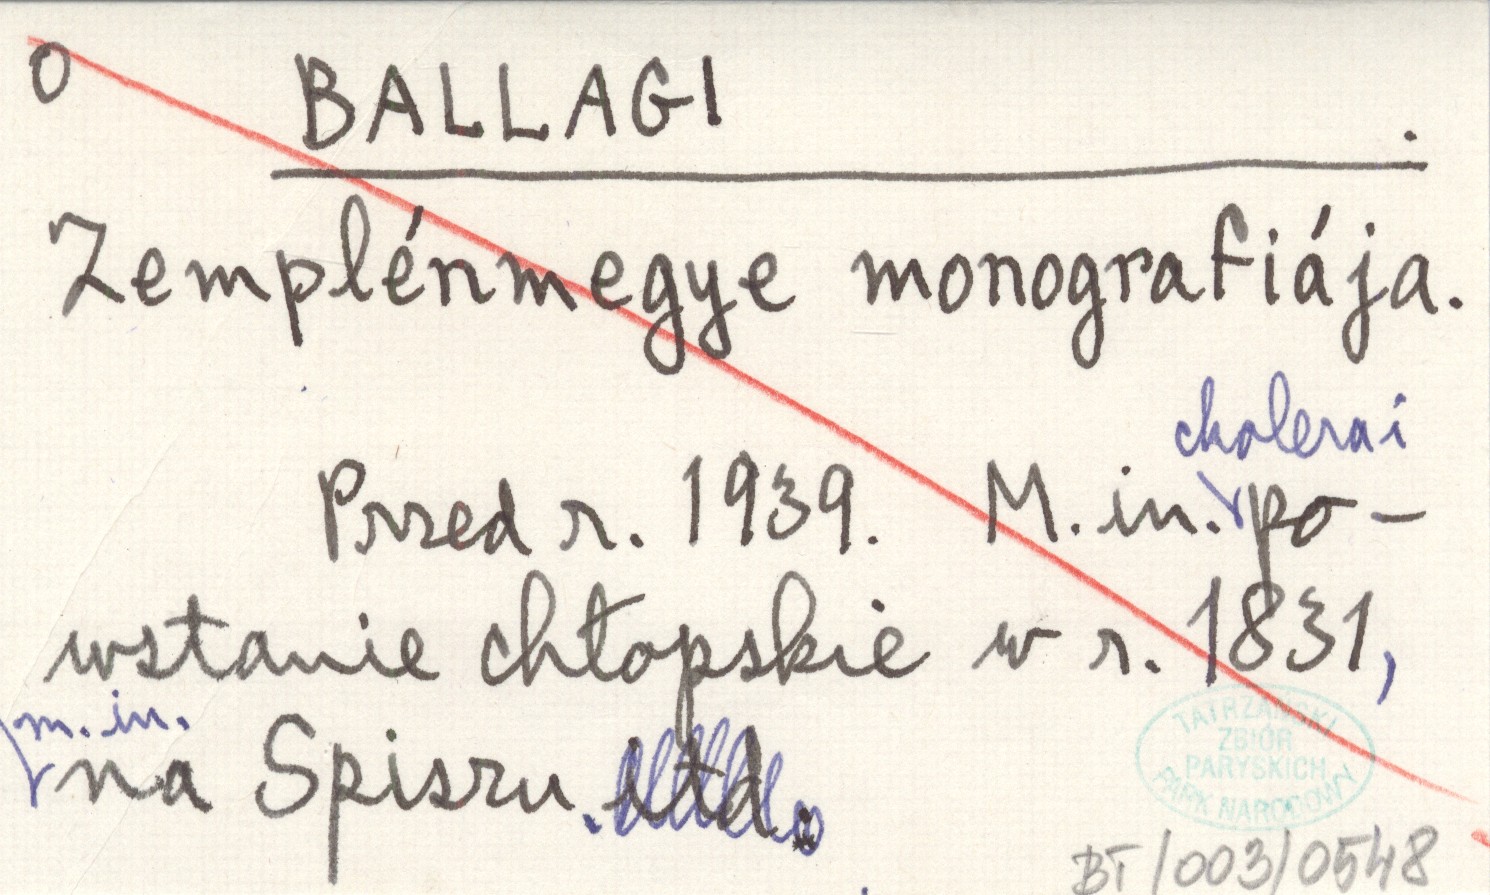 O BALLAGI .
Zemplénmegye monografiája.
cholera i
Przed r. 1939. M. in. po-
wstanie chłopskie w r. 1831,
m. in.
na Spiszu. itd.
TATRZAŃSKI
ZBIÓR
PARYSKICH
PARK NARODOWY
BT/003/0548